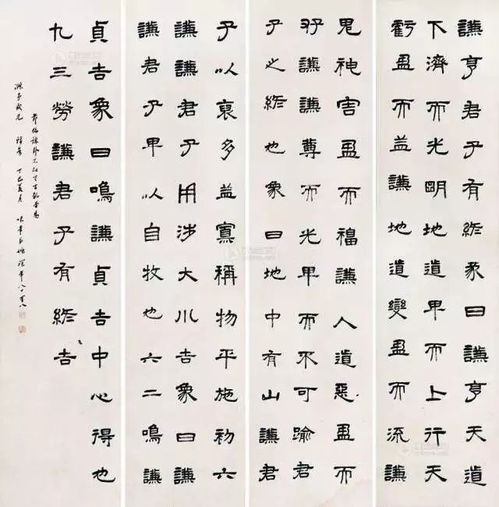 謙亨君子有終彖曰謙亨天道
下濟而光明地道卑而上行天
虧盈而益謙地道變盈而流謙
鬼神害盈而福謙人道惡盈而
好謙謙尊而光卑而不可踰君
子之終也象曰地中有山謙君
子以裒多益寡稱物平施初六
謙謙君子用涉大川吉象曰謙
謙君子卑以自牧也六二鳴謙
貞吉象曰鳴謙貞吉中心得也
九三勞謙君子有終吉
丁巳夏月